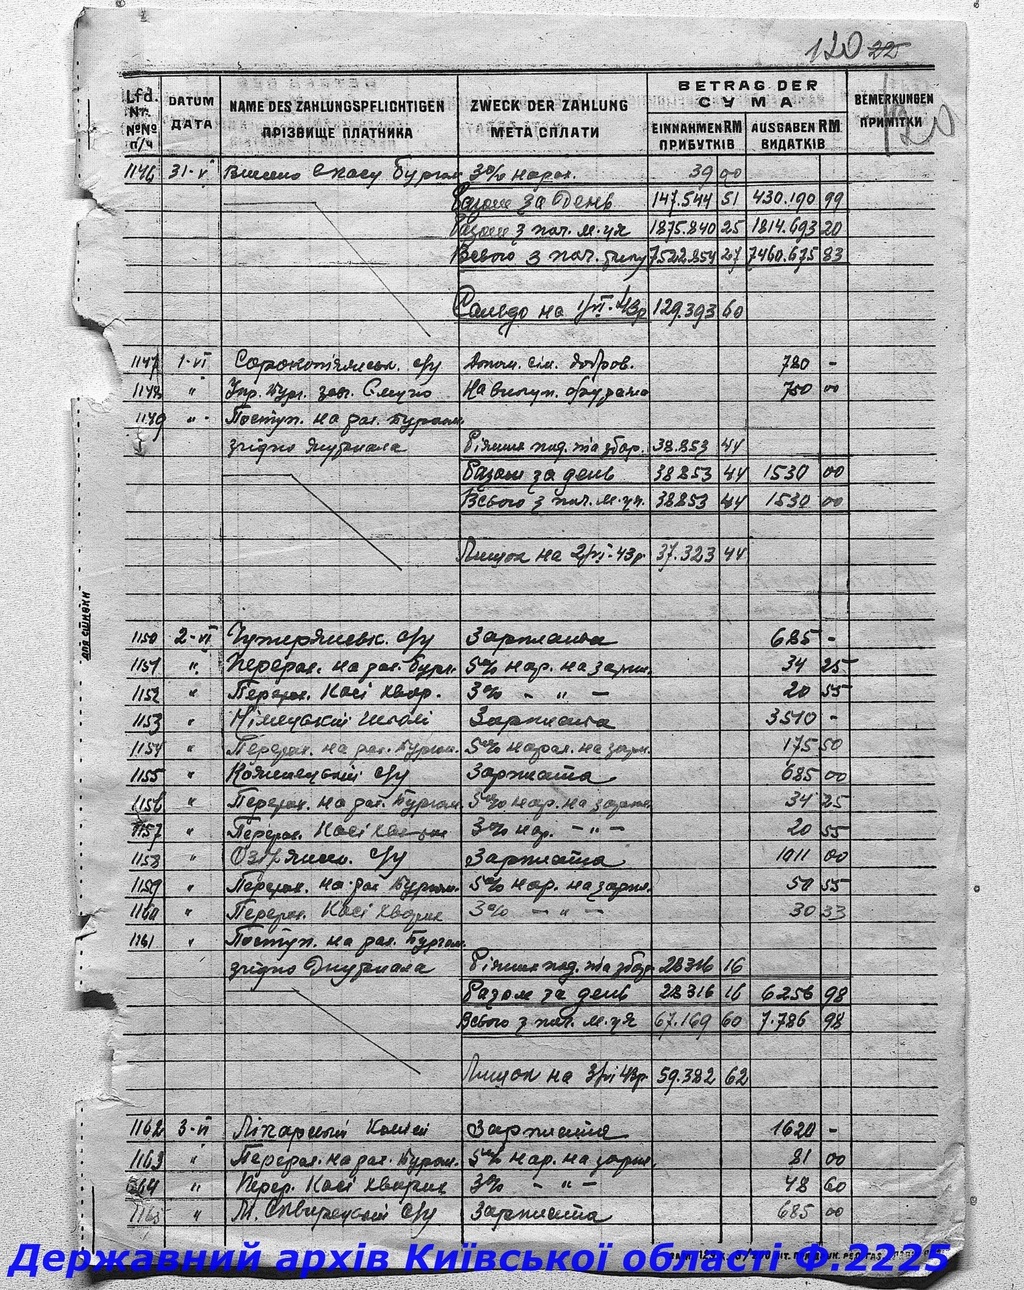 120 22
Lfd. Nr. №№ п/ч
DATUM ДАТА
NAME DES ZAHLUNGSPFLICHTIGEN ПРІЗВИЩЕ ПЛАТНИКА
ZWECK DER ZAHLUNG МЕТА СПЛАТИ
BETRAG DER СУМА
EINNAHMEN RM ПРИБУТКІВ
AUSGABEN RM ВИДАТКІВ
BEMERKUNGEN ПРИМІТКИ
120
1146 31-V 3% нарах. 39 90
Разом за день 147.544 51 430.190 99
Разом з поч. м-ця 1875.840 25 1814.693 20
Всього з поч. 7522.854 27 7460.675 83
Сальдо на 1/VI-43р 129.393 60
1147 1-VI с/у Допом. сім. добров. 780 -
1148 " На 750 00
1149 " Поступ. на рах. Бургом.
згідно Журнала Різних под. та збор. 38.853 44
Разом за день 38853 44 1530 00
Всього з поч. м-ця 38853 44 1530 00
Лишок на 2/VI-43р 37.323 44
для сшивки
1150 2-VI с/у Зарплата 685 -
1151 " Перерах. на рах. Бургом. 5% нар. на зарпл. 34 25
1152 " Перерах. Касі хвор. 3% - " - 20 55
1153 " Німецькій школі Зарплата 3510 -
1154 " Перерах. на рах. Бургом. 5% нарах. на зарпл. 175 50
1155 " с/у Зарплата 685 00
1156 " Перерах. на рах. Бургом. 5% нар. на зарпл. 34 25
1157 " Перерах. Касі 3% нар. - " - 20 55
1158 " с/у Зарплата 1011 00
1159 " Перерах. на рах. Бургом. 5% нар. на зарпл. 50 55
1160 " Перерах. Касі хворих 3% - " - 30 33
1161 " Поступ. на рах. Бургом.
згідно Журнала Різних под. та збор 28316 16
Разом за день 28316 16 6256 98
Всього з поч. м-ця 67.169 60 7.786 98
Лишок на 3/VI 43р 59.382 62
1162 3-VI Зарплата 1620 -
1163 " Перерах. на рах. Бургом. 5% нар. на зарпл. 81 00
1164 " Перер. Касі хворих 3% - " - 48 60
1165 " М. Сквирській с/у Зарплата 685 00
Державний архів Київської області Ф.2225